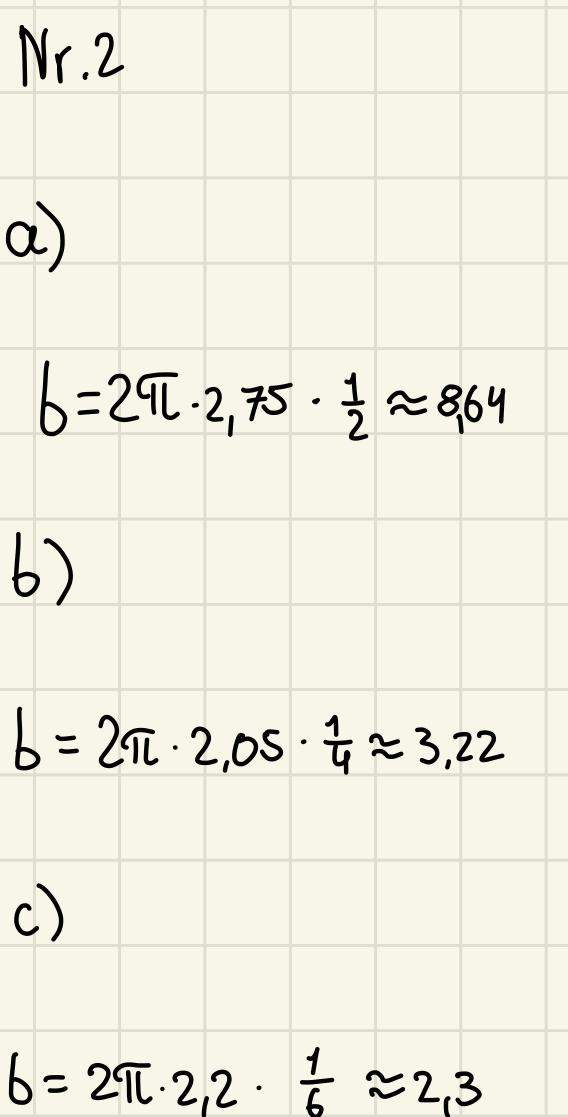 Nr. 2
a)
b = 2π · 2,75 · 1/2 ≈ 8,64
b)
b = 2π · 2,05 · 1/4 ≈ 3,22
c)
b = 2π · 2,2 · 1/6 ≈ 2,3